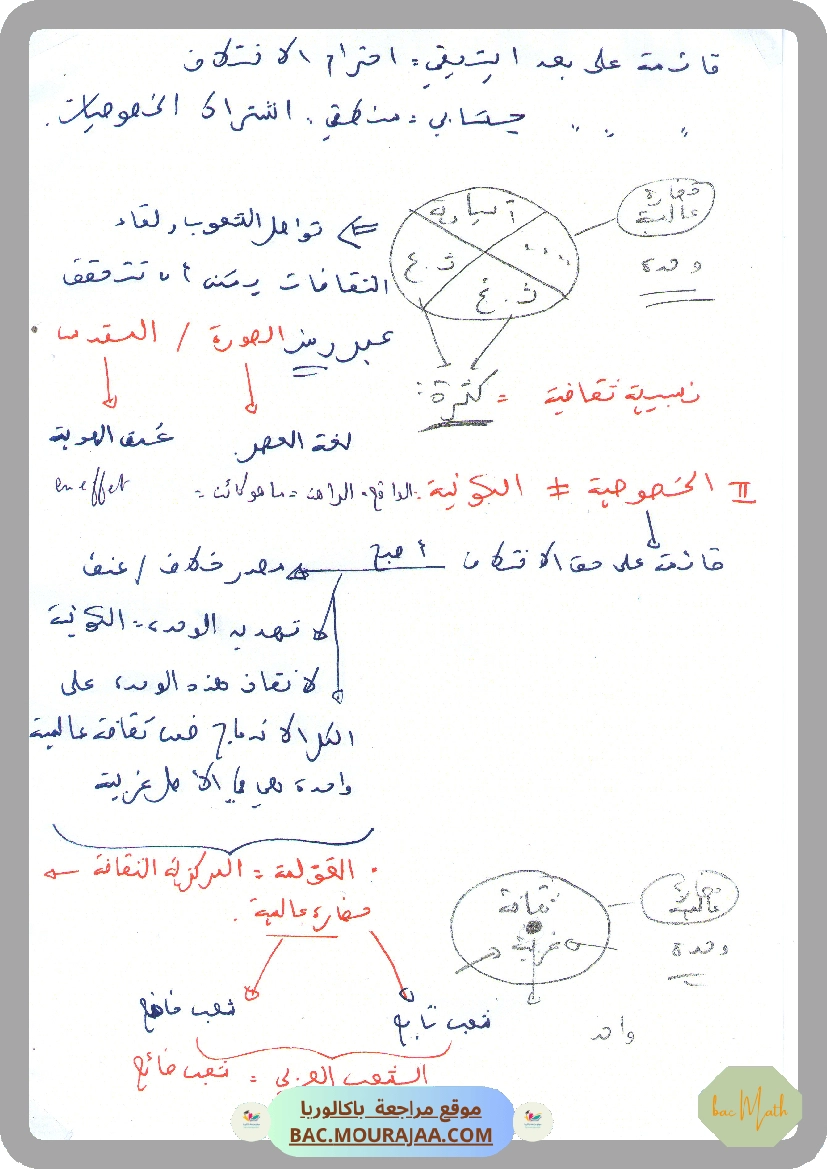 قائمة على بعد إيتيقي = احترام الاختلاف
" " " حسابي = منطقي . اشتراك الخصوصيات.
حضارة عالمية
وحدة
آسيارية
ث. ع
ث. غ
....
⇐ تواصل الشعوب ولقاء
الثقافات يمكن أن تتحقق
عبر رمز الصورة / المقدس
نسبية ثقافية = كثرة:
لغة العصر.
عمق الهوية
II الخصوصية ≠ الكونية: الواقع الراهن = ما هو كائن =
en effet
قائمة على حق الاختلاف أصبح مصدر خلاف / عنف
لا تهديد الوحدة = الكونية
لإنقاذ هذه الوحدة على
الكل الاندماج ضمن ثقافة عالمية
واحدة هي في الأصل غربية
. القولمة = المركزية الثقافة ←
حضارة عالمية.
ثقافة
غربية
حضارة عالمية
وحدة
واحد
شعب تابع
شعب خاضع
الشعب العربي = شعب ضائع
موقع مراجعة باكالوريا
BAC.MOURAJAA.COM
bac Math